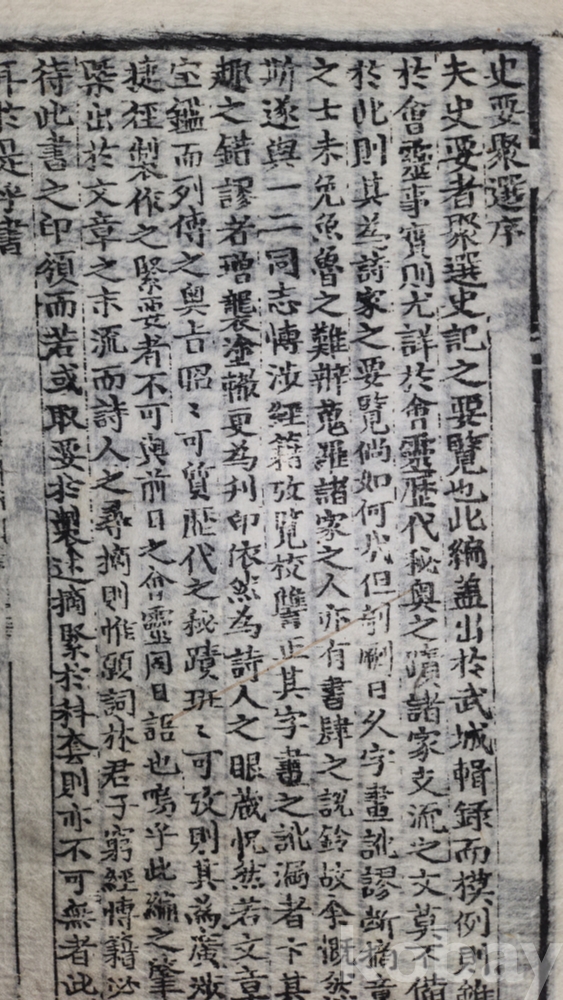 史要聚選序
夫史要者聚選史記之要覽也此編蓋出於武城輯錄而模例則
於會靈事實則尤詳於會靈歷代秘奥之蹟諸家支流之文莫不備
於此則其為詩家之要覽倘如何哉但刻劂日久字畫訛謬斷
之士未免魚魯之難辨蒐羅諸家之人亦有書肆之說鈴故余
斯遂與一二同志愽涉經籍攷覽校讐正其字畫之訛漏者卞其
趣之錯謬者增襲塗轍更為刋印依然為詩人之眼蔵怳然若文章
宝鑑而列傳之奥㫖昭〻可質歷代之秘蹟班〻可攷則其為廣
捷徑製作之緊要者不可與前日之會靈同日語也嗚乎此編之肇
槩出於文章之末流而詩人之尋摘則惟願詞林君子窮經愽籍必
待此書之印頒而若或取要於製述摘緊於科套則亦不可無者此
耳於是乎書